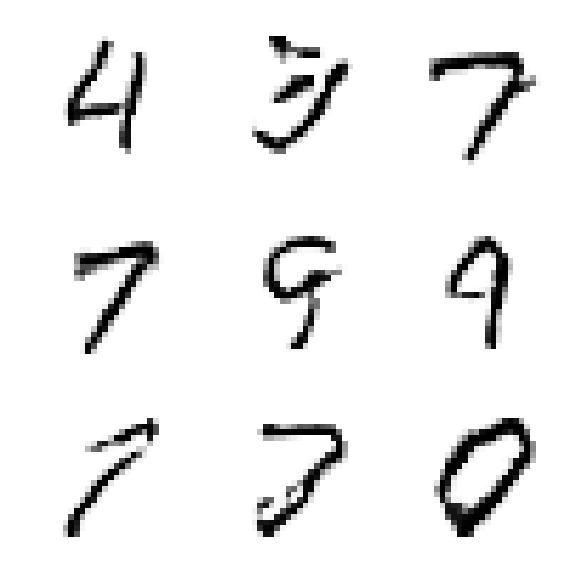 4 7
7 9 9
7 7 0